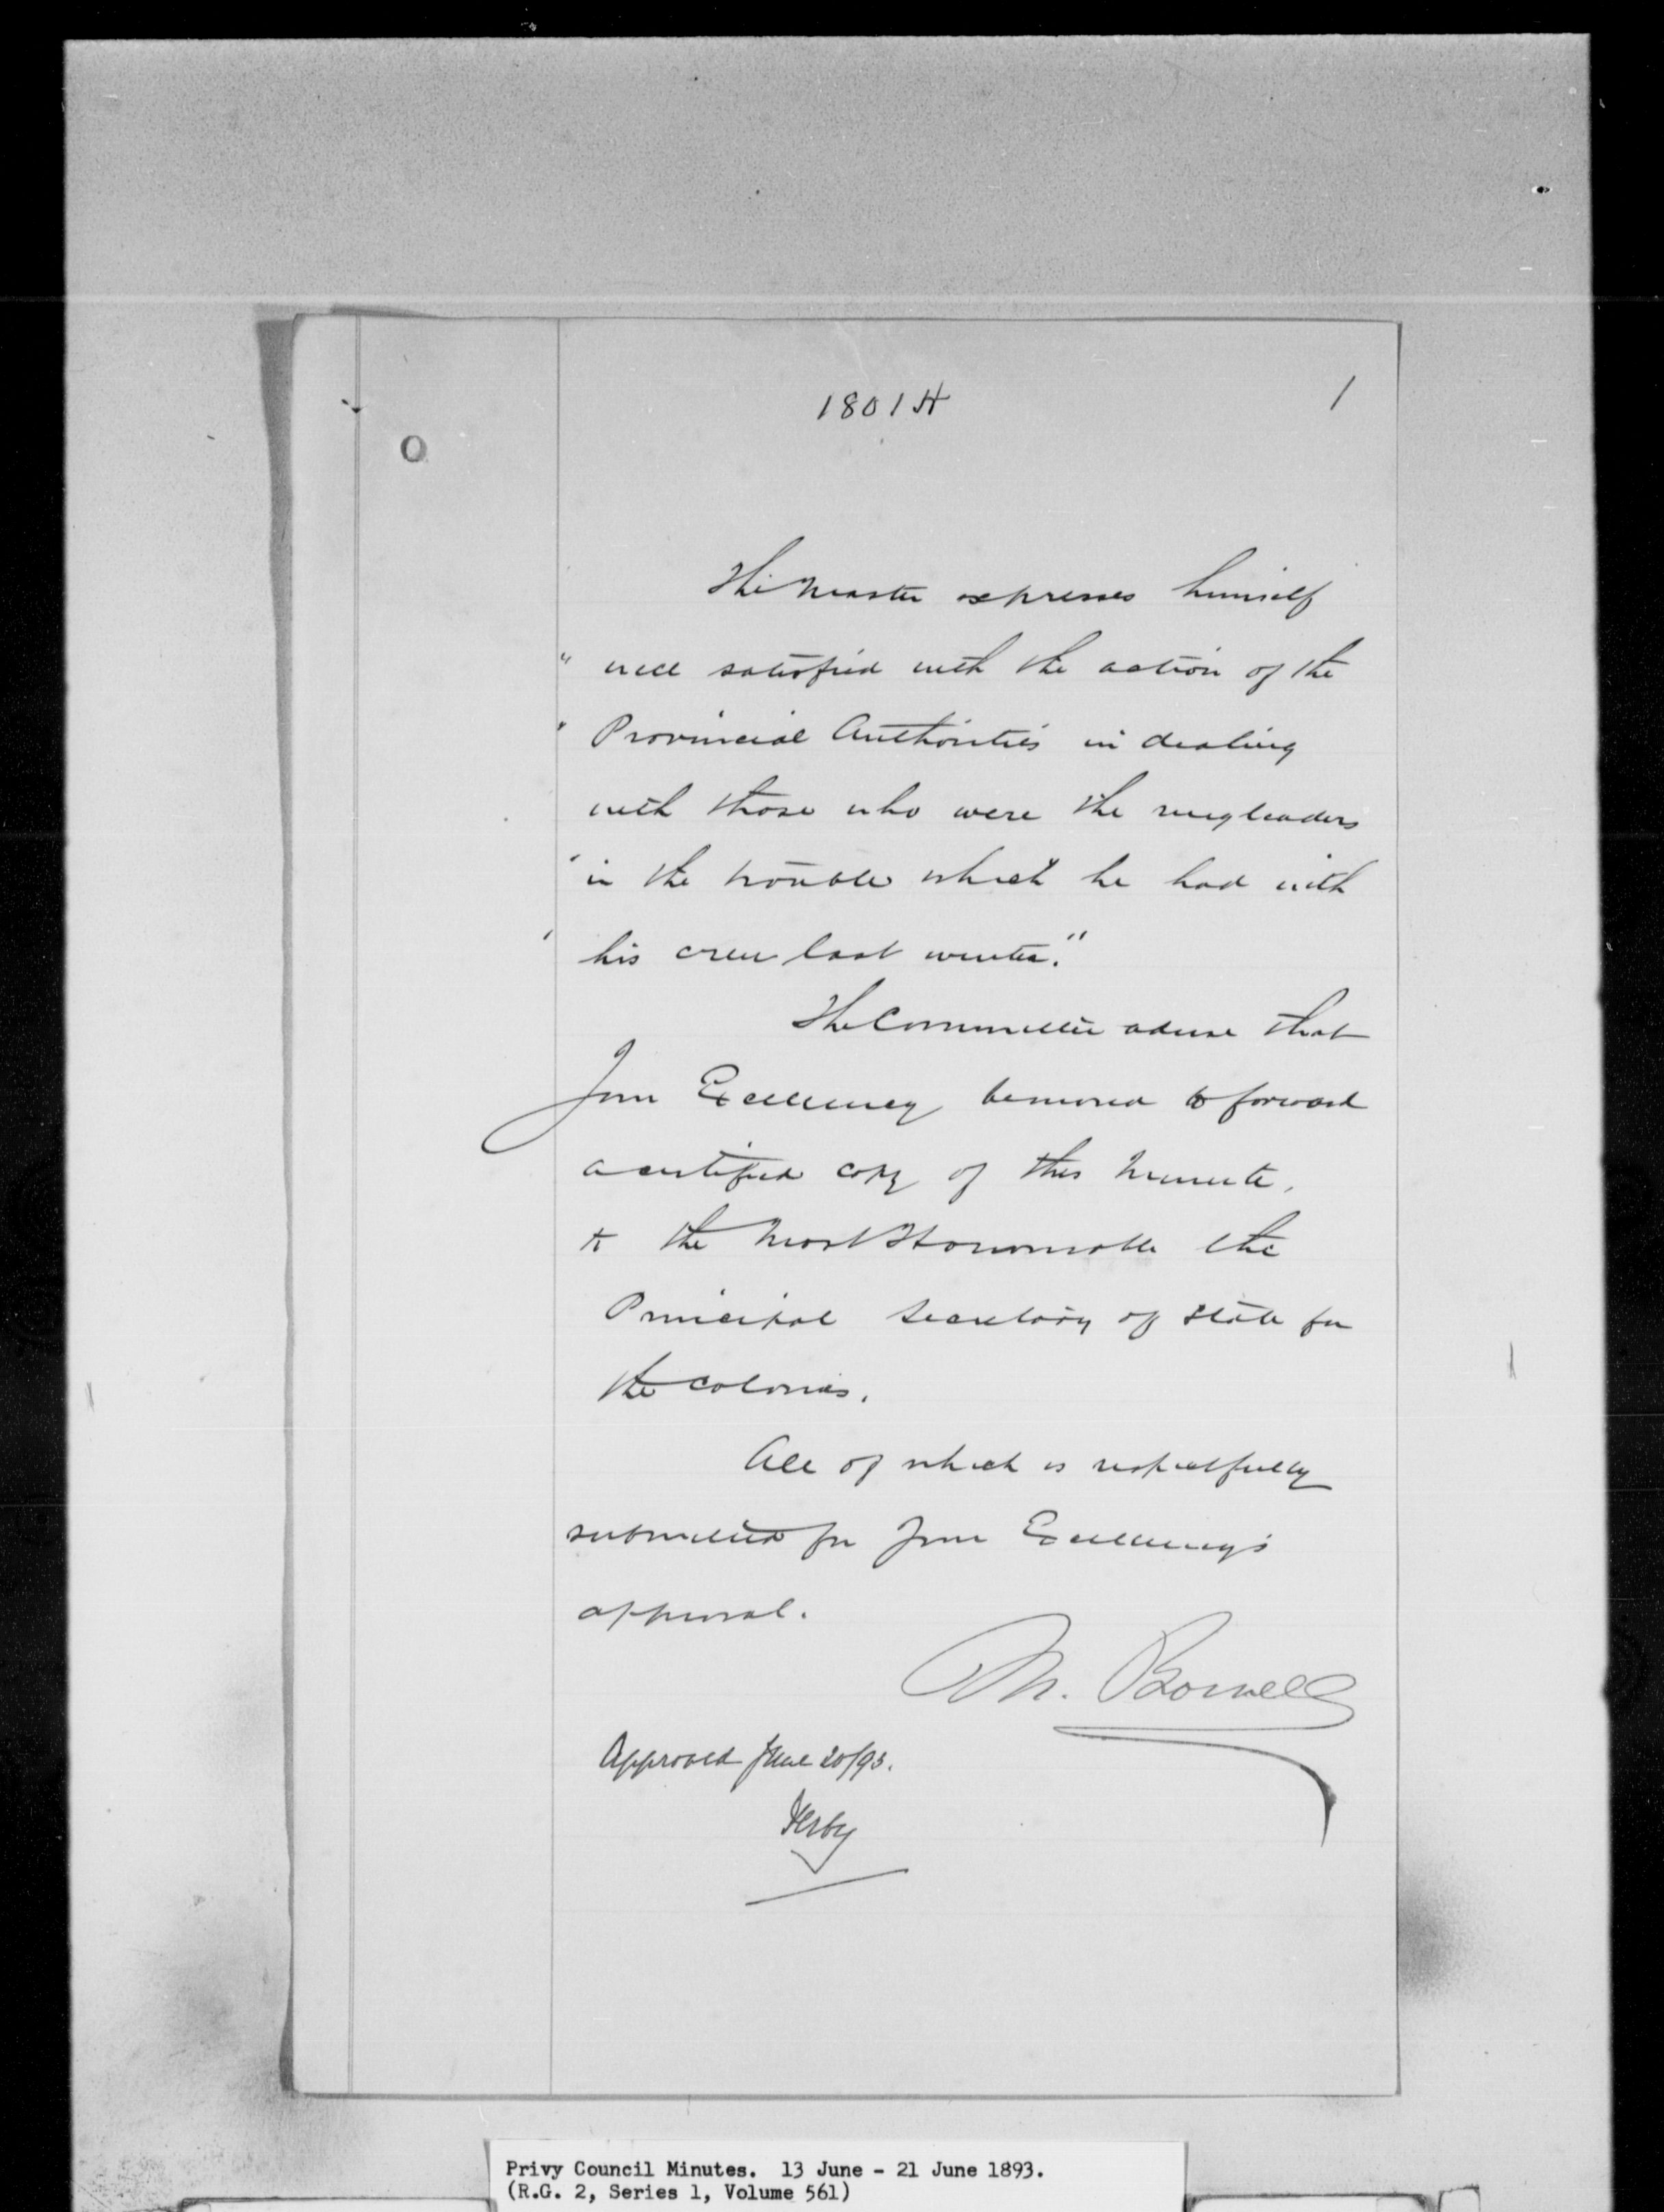 1801 H
1
The Master expresses himself
" well satisfied with the action of the
" Provincial Authorities in dealing
with those who were the ringleaders
" in the trouble which he had with
' his crew last winter."
The Committee advise that
Your Excellency be moved to forward
a certified copy of this Minute,
to the Most Honourable the
Principal Secretary of State for
the Colonies.
All of which is respectfully
submitted for Your Excellency's
approval.
M. Bowell
Approved June 20/93.
Derby
Privy Council Minutes. 13 June - 21 June 1893.
(R.G. 2, Series 1, Volume 561)